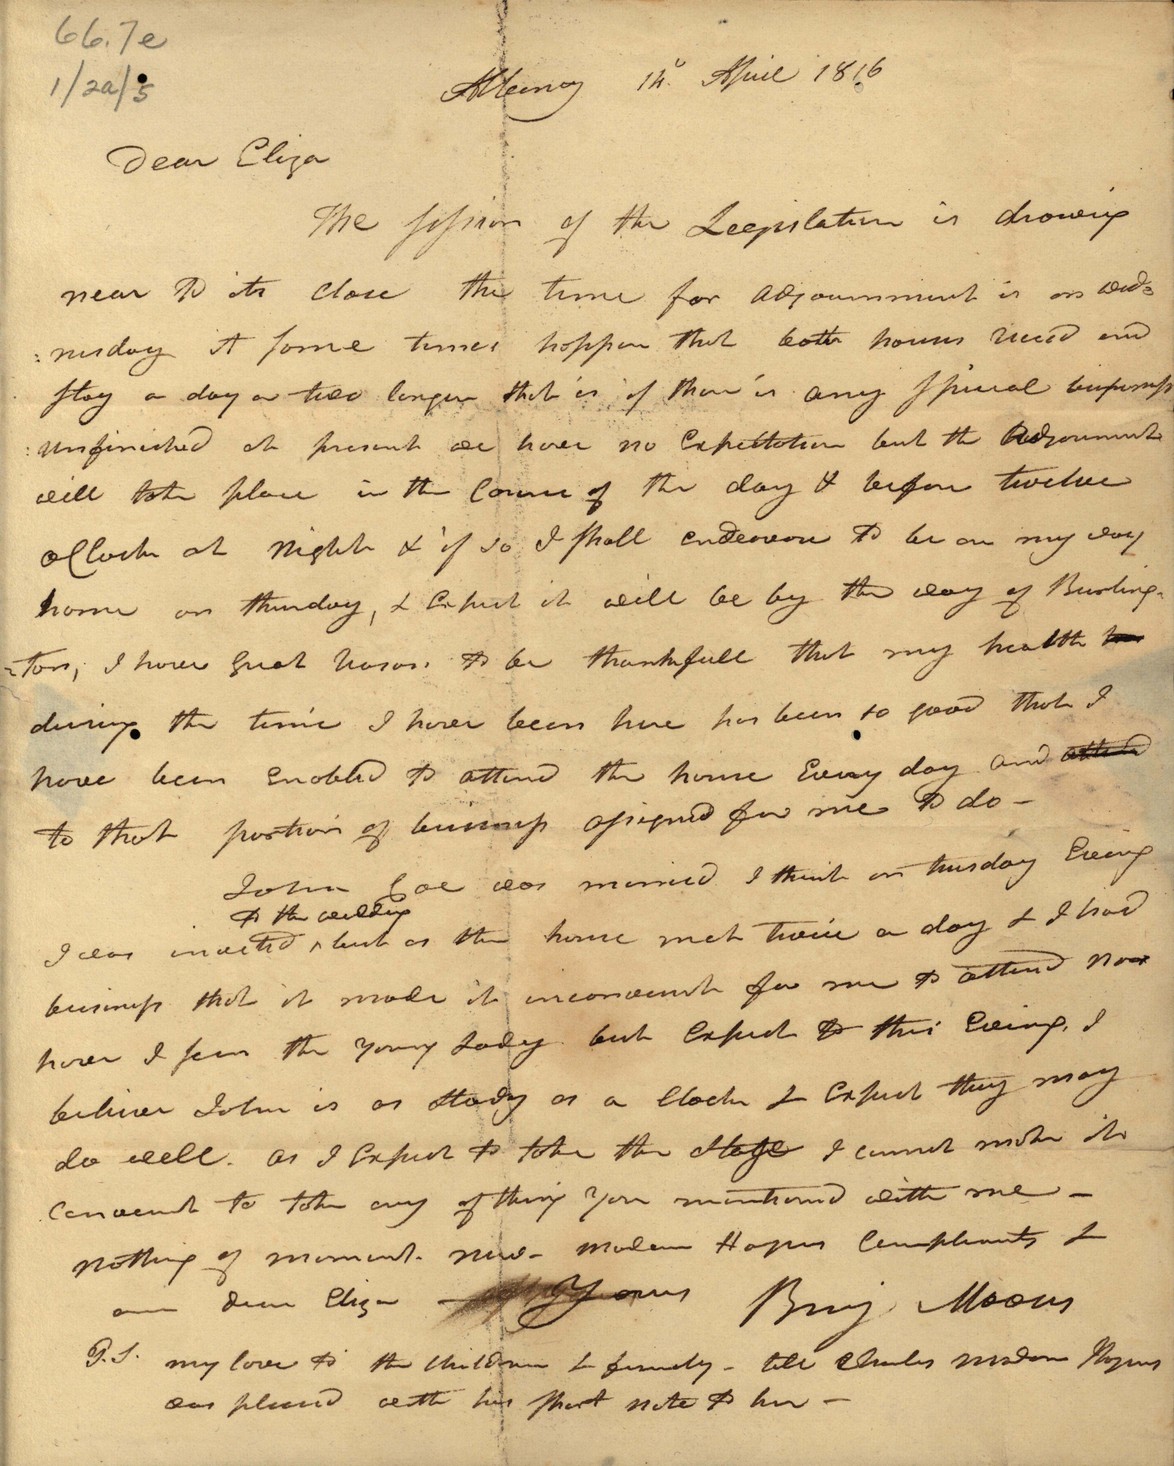 66.7e
1/2a/5
Albany 14th April 1816
Dear Eliza
The session of the Legislature is drawing
near to its close the time for adjournment is on wed=
=nesday it some times happen that both houses and
stay a day or two longer that is if thare is any special business
unfinished at present we have no Expectation but the Adjournment
will take place in the Course of the day & before twelve
oClock at Night & if so I shall endeavour to be on my way
home on thursday, & Expect it will be by the way of Burling=
=ton, I have great reason to be thankfull that my health
during the time I have been here has been so good that I
have been Enabled to attend the house Every day and
to that portion of business assigned for me to do -
John was married I think on tuesday Evening
to the wedding
I was invited ^ but as the house met twice a day & I had
business that it made it inconvenient for me to attend nor
have I seen the young Lady but Expect to this Evening. I
believe John is as steady as a Clock & Expect they may
do well. as I Expect to take the stage I cannot make it
convenient to take any of thing you mentioned with me -
nothing of moment. new- madam Hagus Compliments &
am dear Eliza Yours Benj. Mooers
P.S. my love to the Children & family - tell Charles madam Hagus
was pleased with his short note to her -